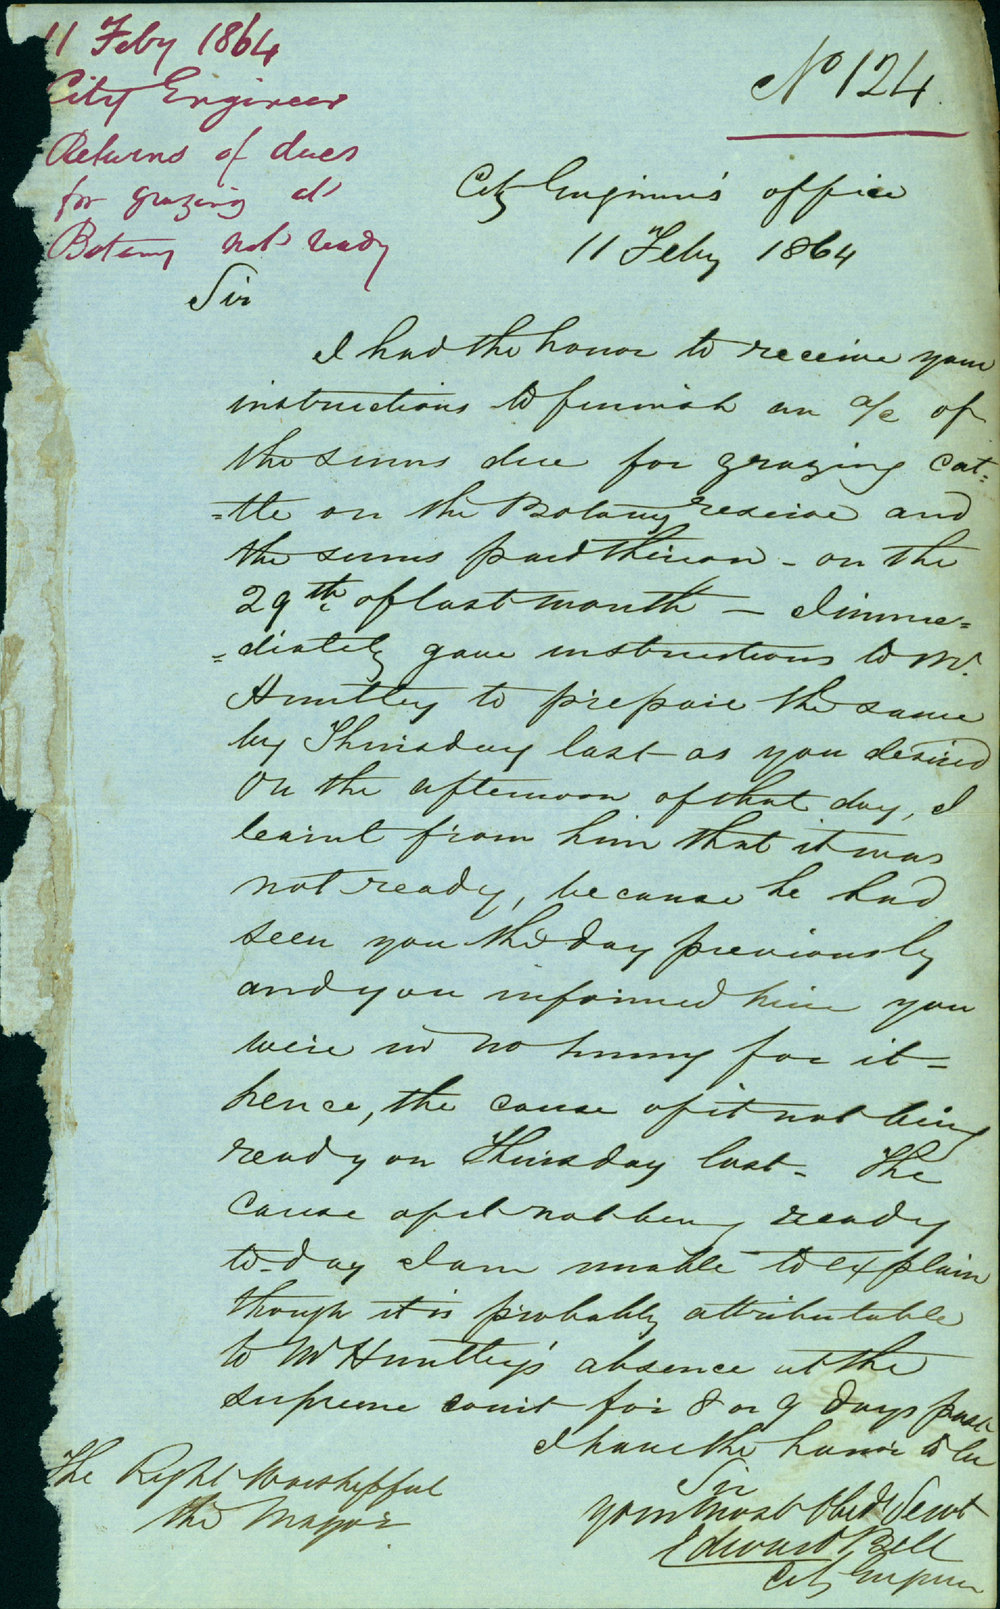 11 Feby 1864
City Engineer
Returns of dues
for grazing at
Botany not ready
No 124
City Engineer's office
11 Feby 1864
Sir
I had the honor to receive your
instructions to furnish an a/c of
the sums due for grazing cat=
=tle on the Botany reserve and
the sums paid thereon - on the
29th of last month - I imme=
=diately gave instructions to Mr.
Huntley to prepare the same
by Thursday last as you desired
On the afternoon of that day, I
learnt from him that it was
not ready, because he had
seen you the day previously
and you informed him you
were in no hurry for it -
hence, the cause of it not being
ready on Thursday last - The
Cause of it not being ready
to-day I am unable to explain
though it is probably attributable
to Mr Huntley's absence at the
supreme court for 8 or 9 days past
I have the honor to be
Sir
your most Obedt Servt
Edward Bell
City Engineer
The Right Worshipful
the Mayor